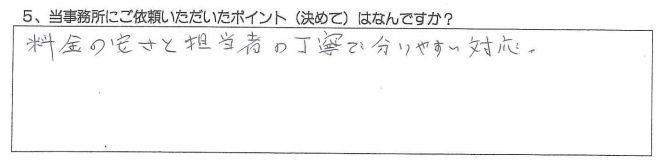 5、当事務所にご依頼いただいたポイント（決めて）はなんですか？
料金の安さと担当者の丁寧で分りやすい対応。